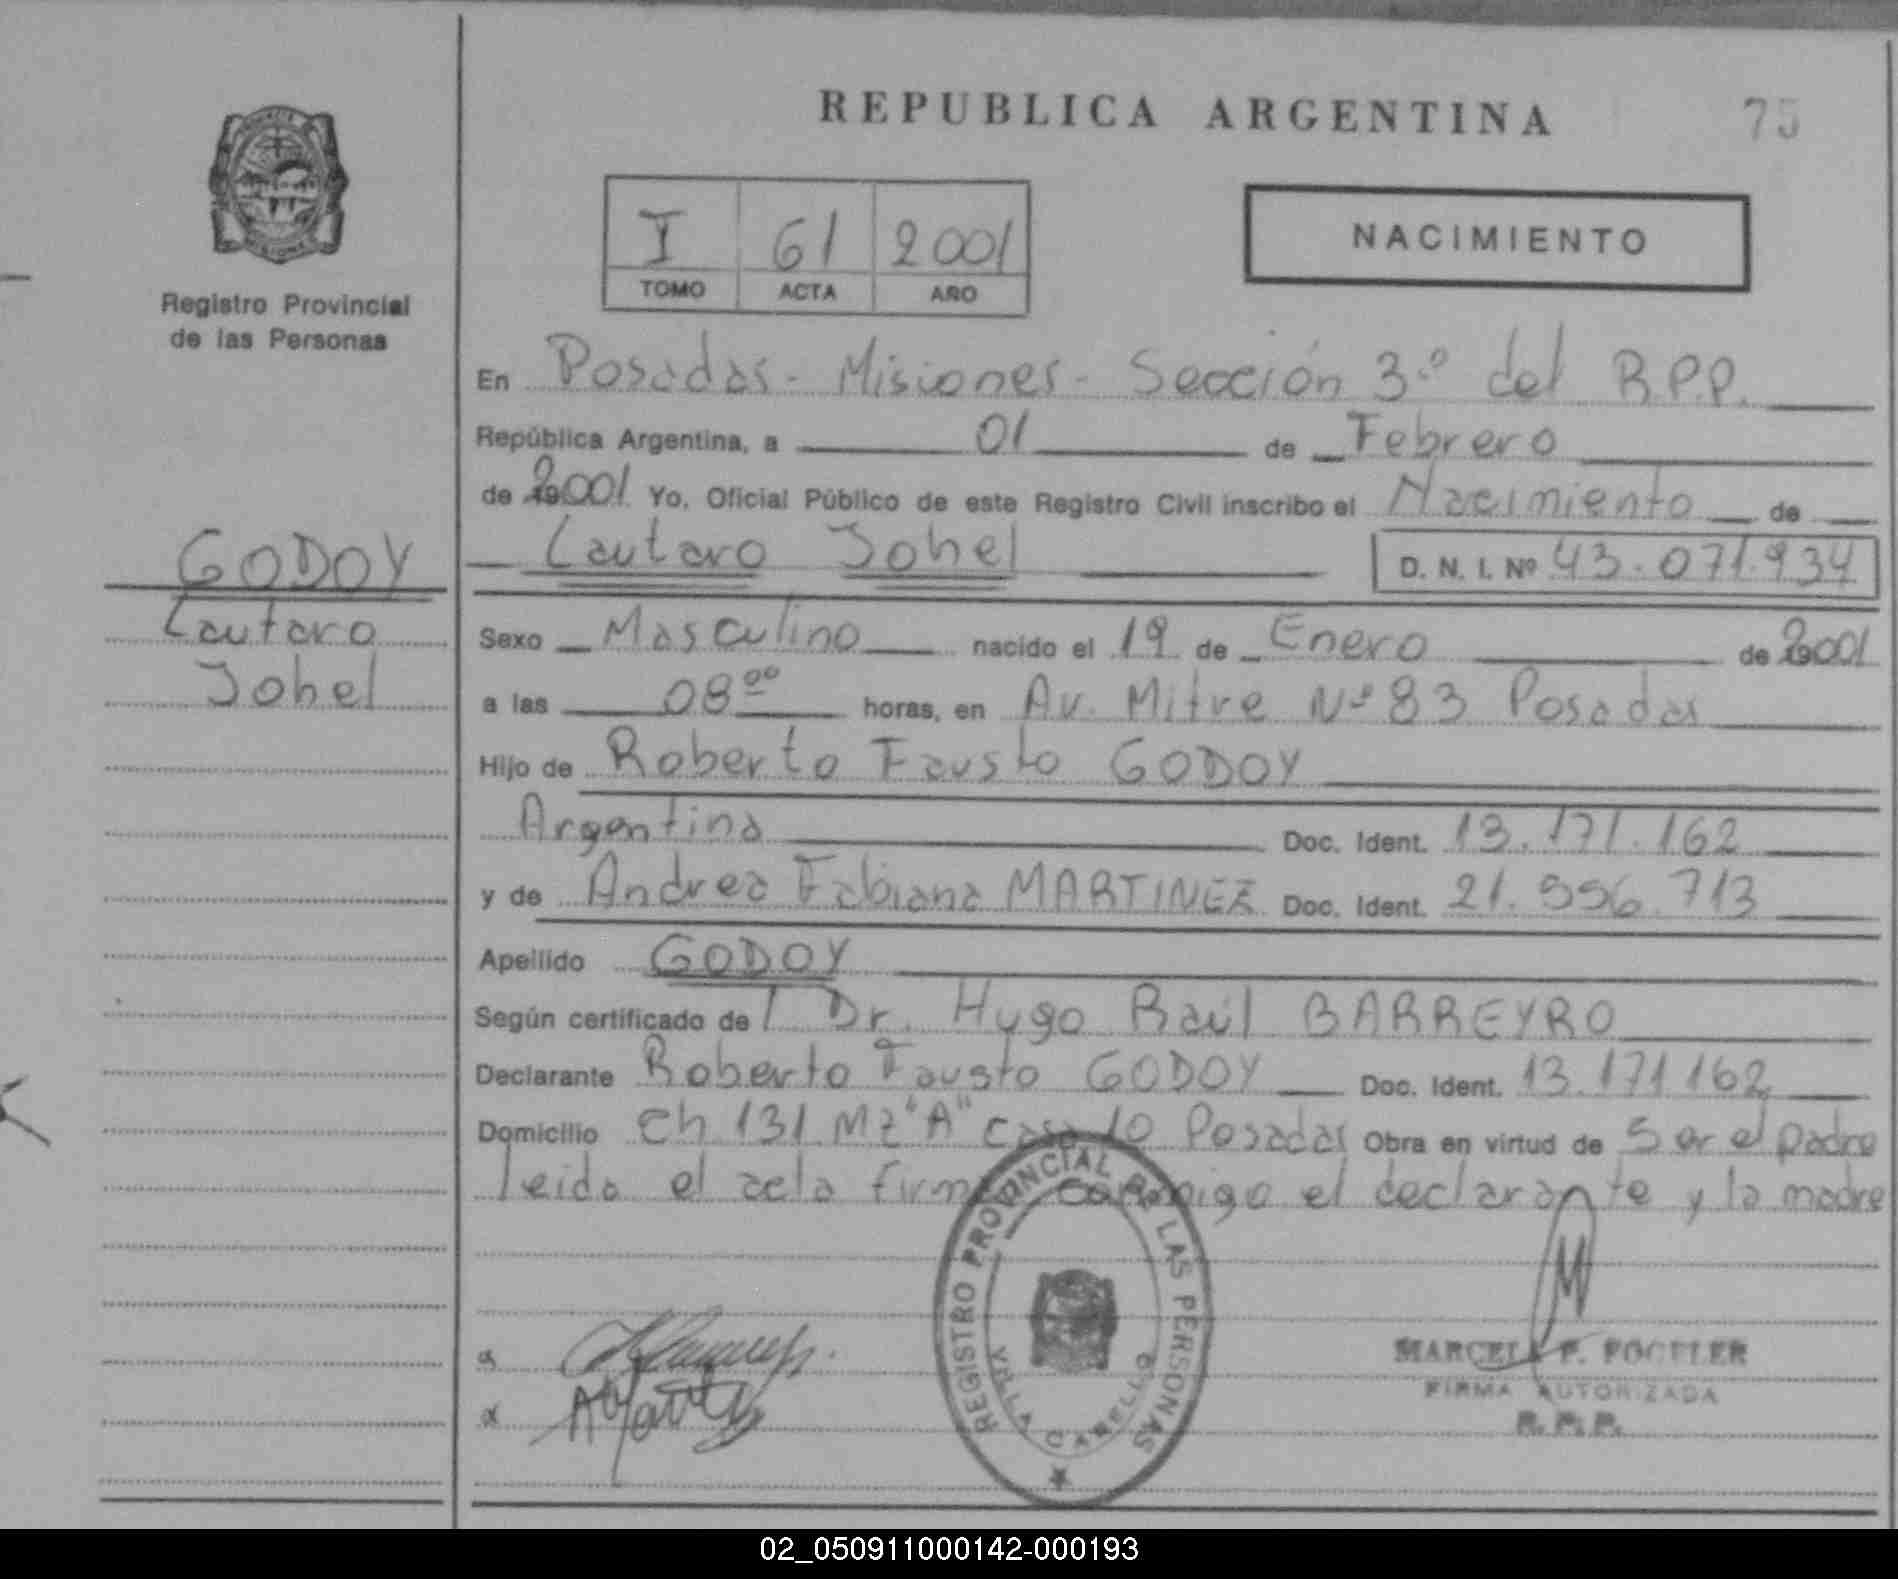 REPUBLICA ARGENTINA
75
I 61 2001
TOMO ACTA AÑO
NACIMIENTO
Registro Provincial
de las Personas
En Posadas - Misiones - Sección 3º del R.P.P.
República Argentina, a 01 de Febrero
de 2001 Yo, Oficial Público de este Registro Civil inscribo el Nacimiento de
Lautaro Johel D. N. I. Nº 43.071.934
GODOY
Lautaro
Johel
Sexo Masculino nacido el 19 de Enero de 2001
a las 08 00 horas, en Av. Mitre Nº 83 Posadas
Hijo de Roberto Fausto GODOY
Argentina Doc. Ident. 13.171.162
y de Andrea Fabiana MARTINEZ Doc. Ident. 21.556.713
Apellido GODOY
Según certificado de Dr. Hugo Raúl BARREYRO
Declarante Roberto Fausto GODOY Doc. Ident. 13.171.162
Domicilio Ch 131 Mz "A" casa 10 Posadas Obra en virtud de Ser el padre
leida el acta firma conmigo el declarante y la madre
REGISTRO PROVINCIAL DE LAS PERSONAS
VILLA CABELLO
FIRMA AUTORIZADA
R. P. P.
02_050911000142-000193